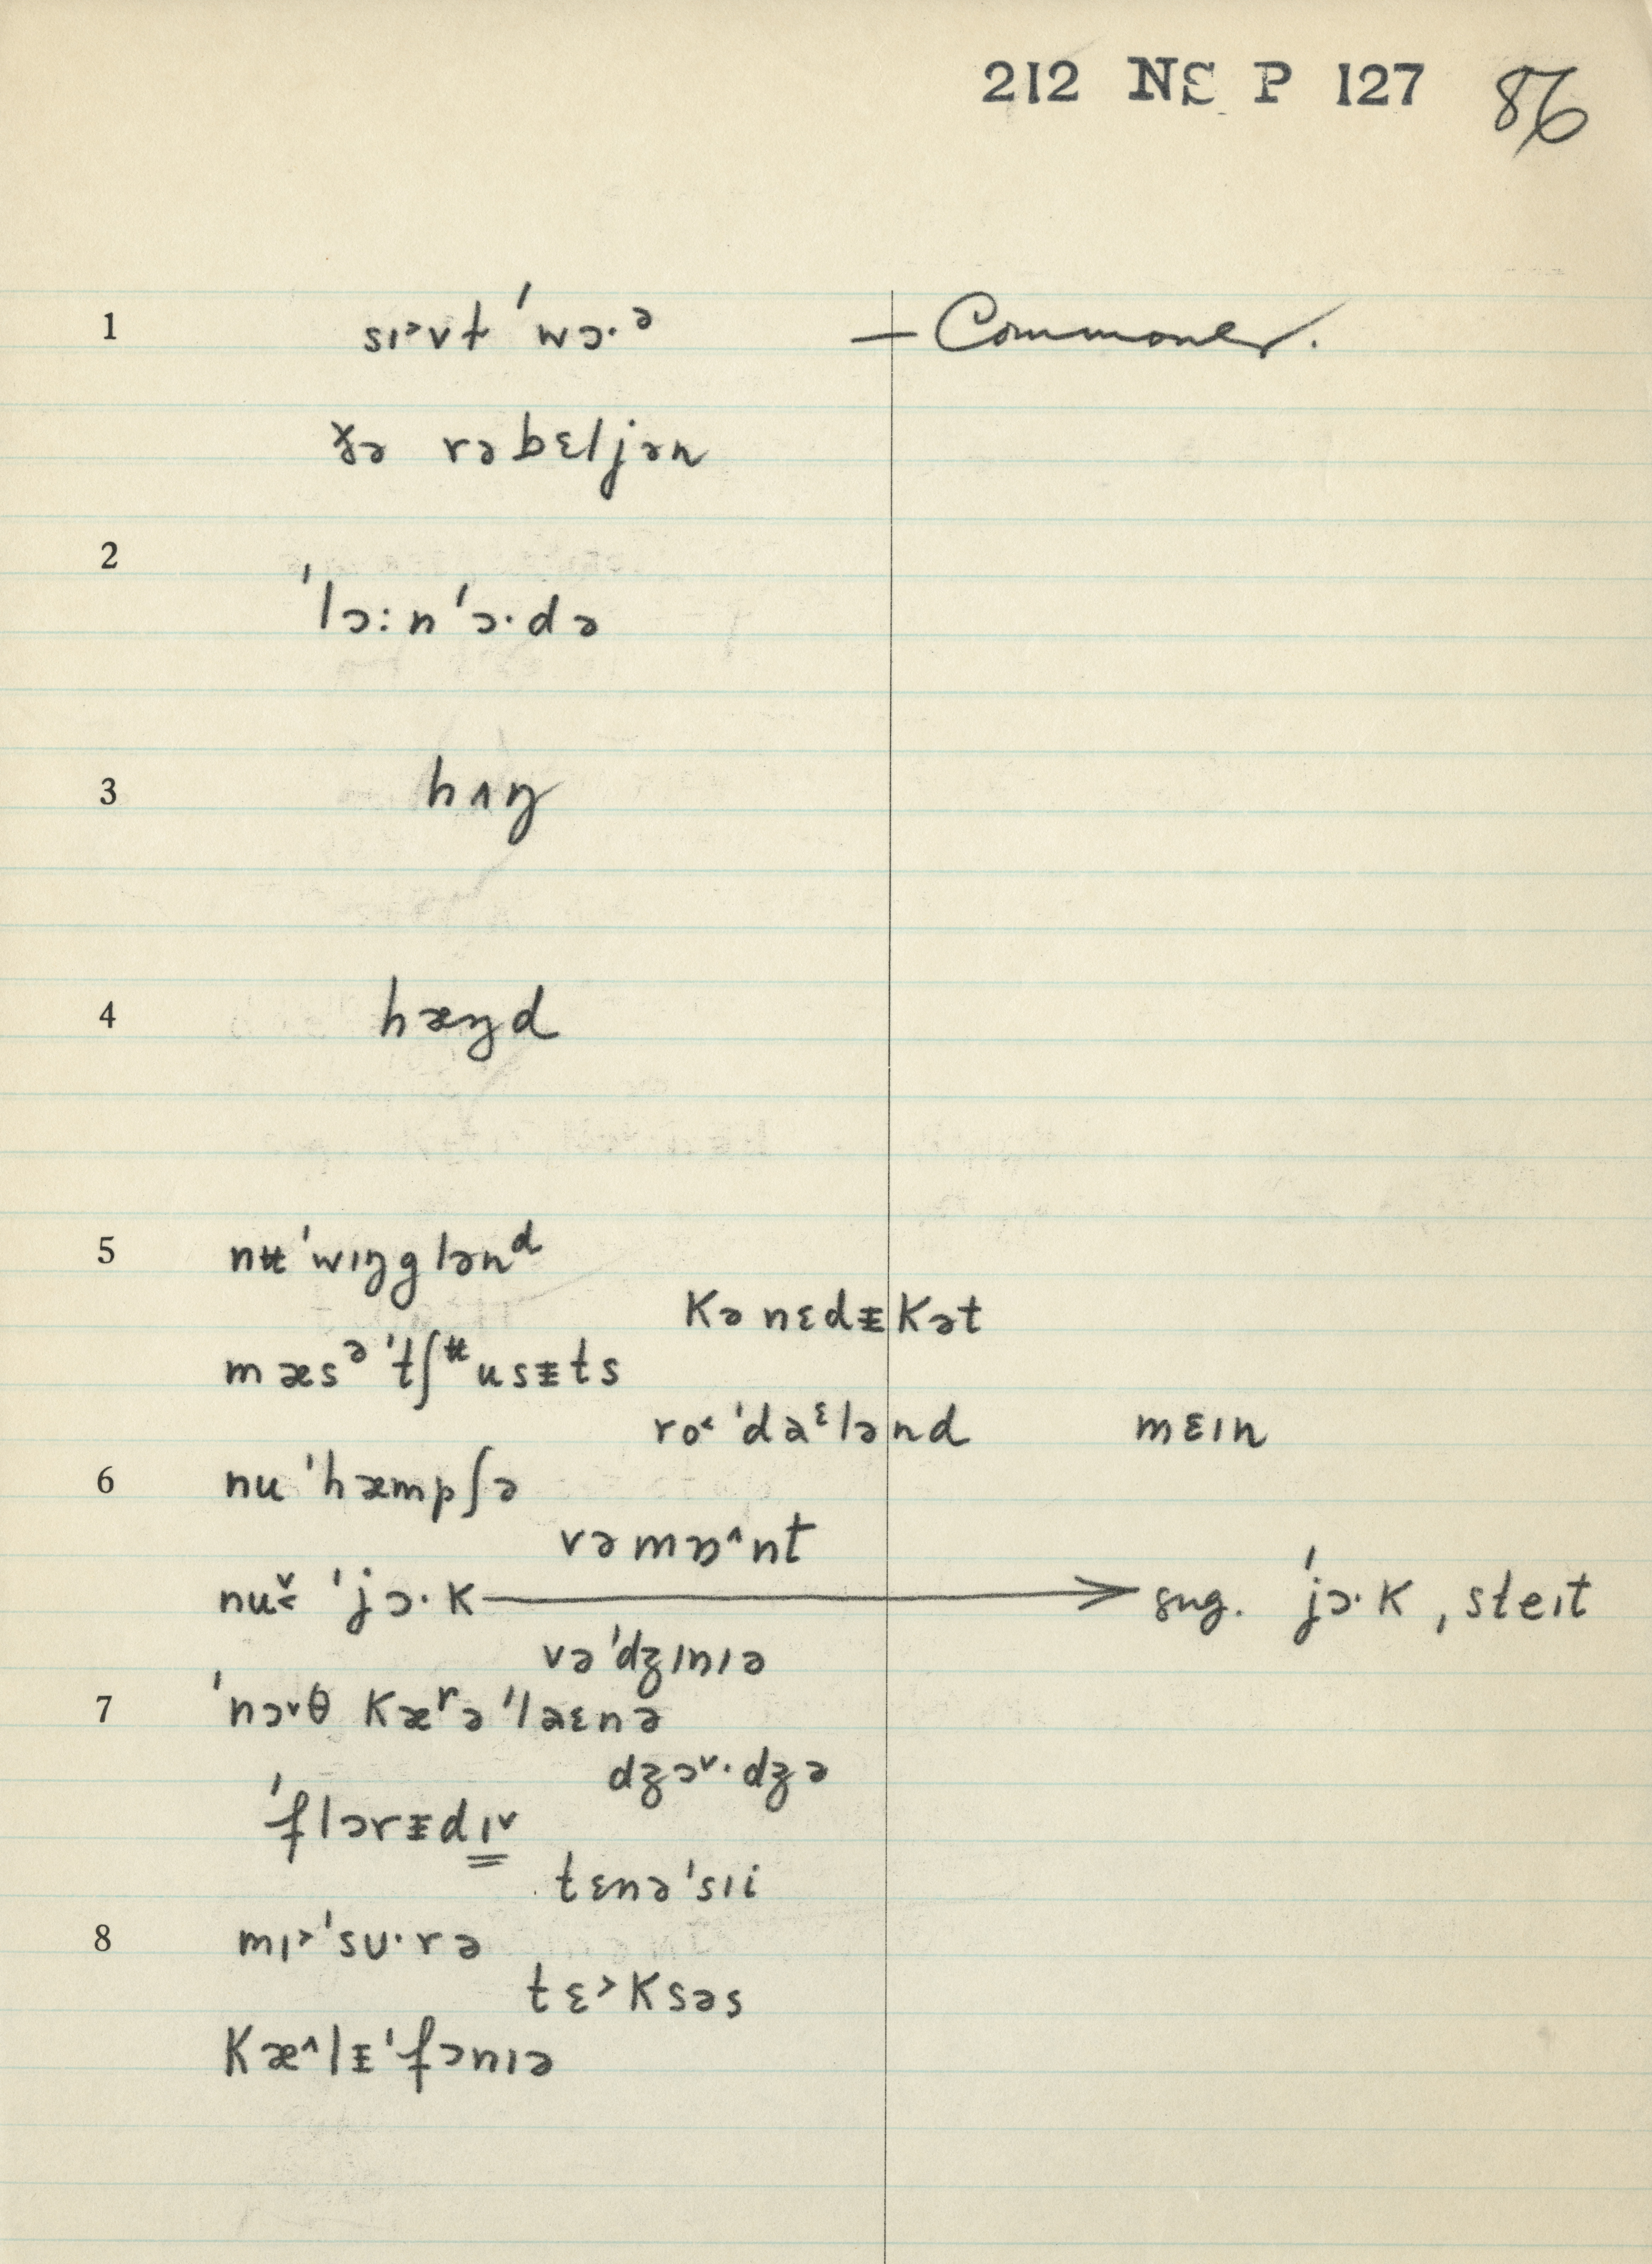 212 NS P 127 86
1 sɪ˃vt ˈwɔ·ᵊ — Commoner.
ðə rəbɛljən
2
ˈlɔ:n ˈɔ·də
3 hʌŋ
4 hæŋd
5 nʉ ˈwɪŋg lənᵈ
kə nɛdᵻkət
mæsᵊ ˈtʃᶶusᵻts
ro˂ ˈdaᵋlənd mɛɪn
6 nu ˈhæmpʃə
vəmɒ˄nt
nu˅˂ ˈjɔ·k ⟶ sug. ˈjɔ·k, steɪt
vəˈdʒɪnɪə
7 ˈnɔ˅θ kæʳəˈlaɛnə
dʒɔ˅·dʒə
ˈflɔrᵻdɪ˅
tɛnəˈsɪi
8 mɪ˃ˈsʊ·rə
tɛ˃ksəs
kæ˄lᵻˈfɔnɪə